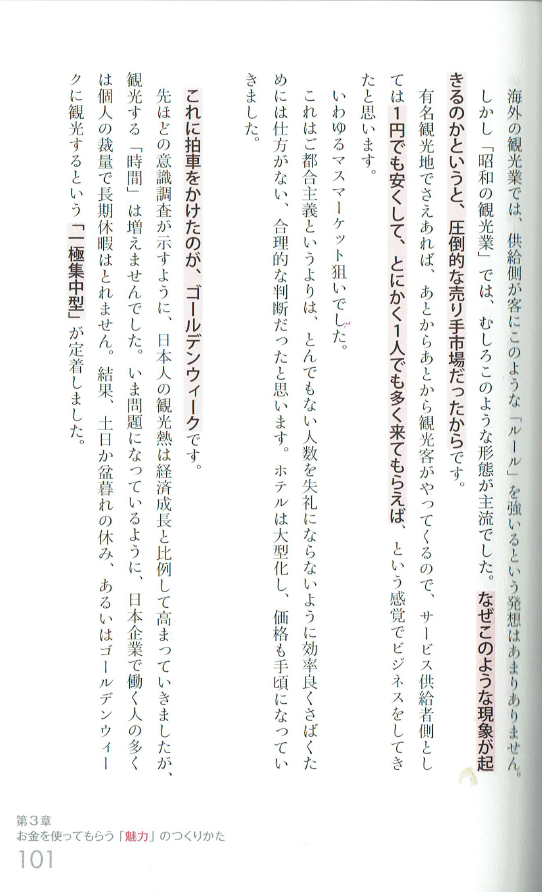 海外の観光業では、供給側が客にこのような「ルール」を強いるという発想はあまりありません。
しかし「昭和の観光業」では、むしろこのような形態が主流でした。なぜこのような現象が起
きるのかというと、圧倒的な売り手市場だったからです。
有名観光地でさえあれば、あとからあとから観光客がやってくるので、サービス供給者側とし
ては１円でも安くして、とにかく１人でも多く来てもらえば、という感覚でビジネスをしてき
たと思います。
いわゆるマスマーケット狙いでした。
これはご都合主義というよりは、とんでもない人数を失礼にならないように効率良くさばくた
めには仕方がない、合理的な判断だったと思います。ホテルは大型化し、価格も手頃になってい
きました。
これに拍車をかけたのが、ゴールデンウィークです。
先ほどの意識調査が示すように、日本人の観光熱は経済成長と比例して高まっていきましたが、
観光する「時間」は増えませんでした。いま問題になっているように、日本企業で働く人の多く
は個人の裁量で長期休暇はとれません。結果、土日か盆暮れの休み、あるいはゴールデンウィー
クに観光するという「一極集中型」が定着しました。
第３章
お金を使ってもらう「魅力」のつくりかた
101